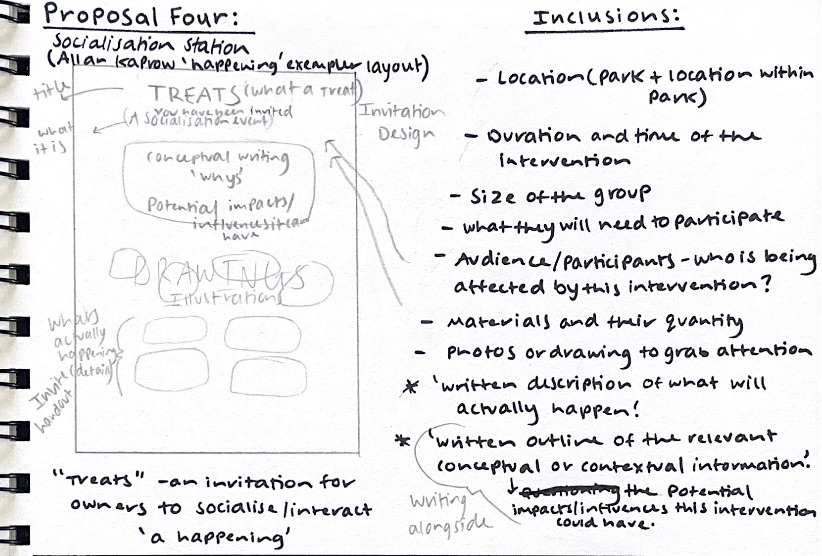 Proposal Four:
Socialisation Station
(Allan Kaprow 'happening' exempler layout)
title
TREATS (what a treat)
you have been invited
(A socialisation event)
what
it is
Invitation
Design
conceptual writing
'whys'
Potential impacts/
influences it can
have
DRAWINGS
Illustrations
whats
actually
happening
(detail)
Invite
handout
"Treats" - an invitation for
owners to socialise/interact
'a happening'
Inclusions:
- Location (park + location within
park)
- Duration and time of the
intervention
- Size of the group
- what they will need to participate
- Audience/participants - who is being
affected by this intervention?
- Materials and their quantity
- Photos or drawing to grab attention
* 'written description of what will
actually happen!
* 'written outline of the relevant
conceptual or contextual information!
questioning the potential
impacts/influences this intervention
could have.
Writing
alongside